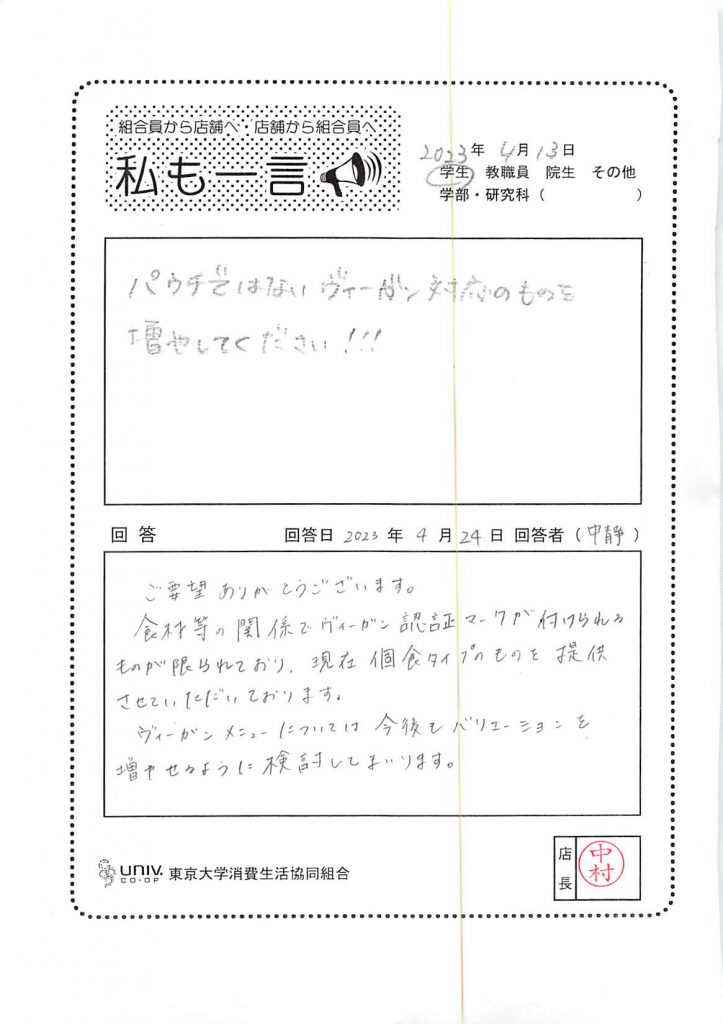 組合員から店舗へ・店舗から組合員へ
私も一言
2023年4月13日
学生 教職員 院生 その他
学部・研究科（ ）
パウチではないヴィーガン対応のものを
増やしてください!!!
回答 回答日 2023年4月24日 回答者（中静）
ご要望ありがとうございます。
食材等の関係でヴィーガン認証マークが付けられる
ものが限られており、現在個食タイプのものを提供
させていただいております。
ヴィーガンメニューについては今後もバリエーションを
増やせるように検討してまいります。
UNIV. CO-OP 東京大学消費生活協同組合
店長 中村